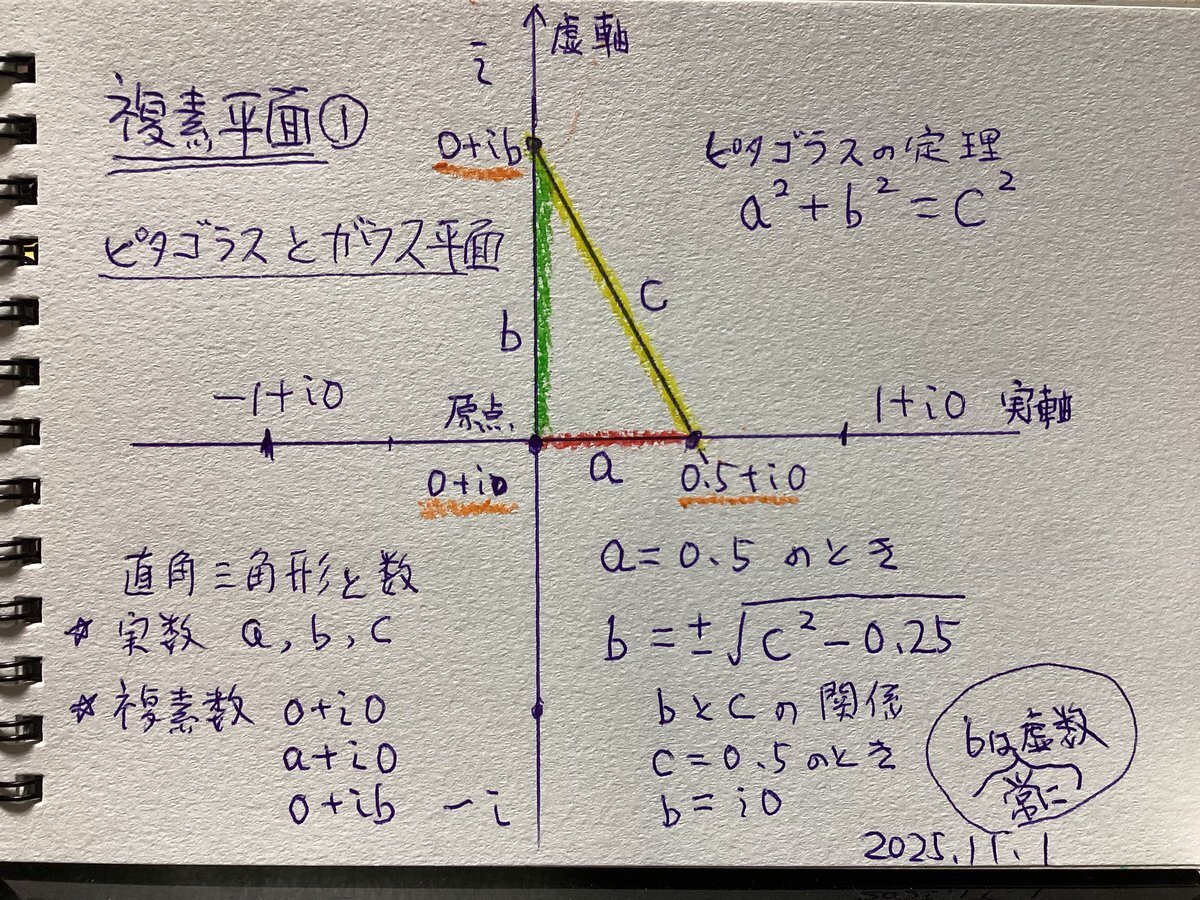 複素平面①
ピタゴラスとガウス平面
i
虚軸
0+ib
ピタゴラスの定理
a²+b²=c²
b
c
-1+i0
原点
1+i0 実軸
0+i0
a
0.5+i0
直角三角形と数
☆ 実数 a, b, c
☆ 複素数 0+i0
a+i0
0+ib
-i
a=0.5のとき
b=±√c²-0.25
bとcの関係
c=0.5のとき
b=i0
bは虚数
常に
2025.11.1